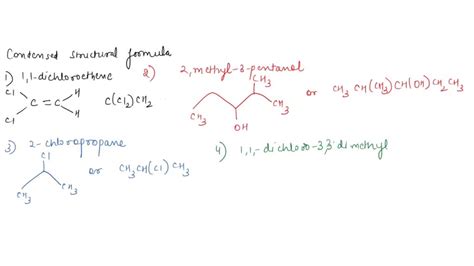 Condensed structural formula
1) 1,1-dichloroethene
Cl
Cl
C=C
H
H
C(Cl2)CH2
2) 2,methyl-3-pentanol
CH3
CH3
CH3
OH
or CH3 CH(CH3)CH(OH)CH2CH3
3) 2-chloropropane
Cl
CH3
CH3
or CH3CH(Cl)CH3
4) 1,1,-dichloro-3,3 dimethyl